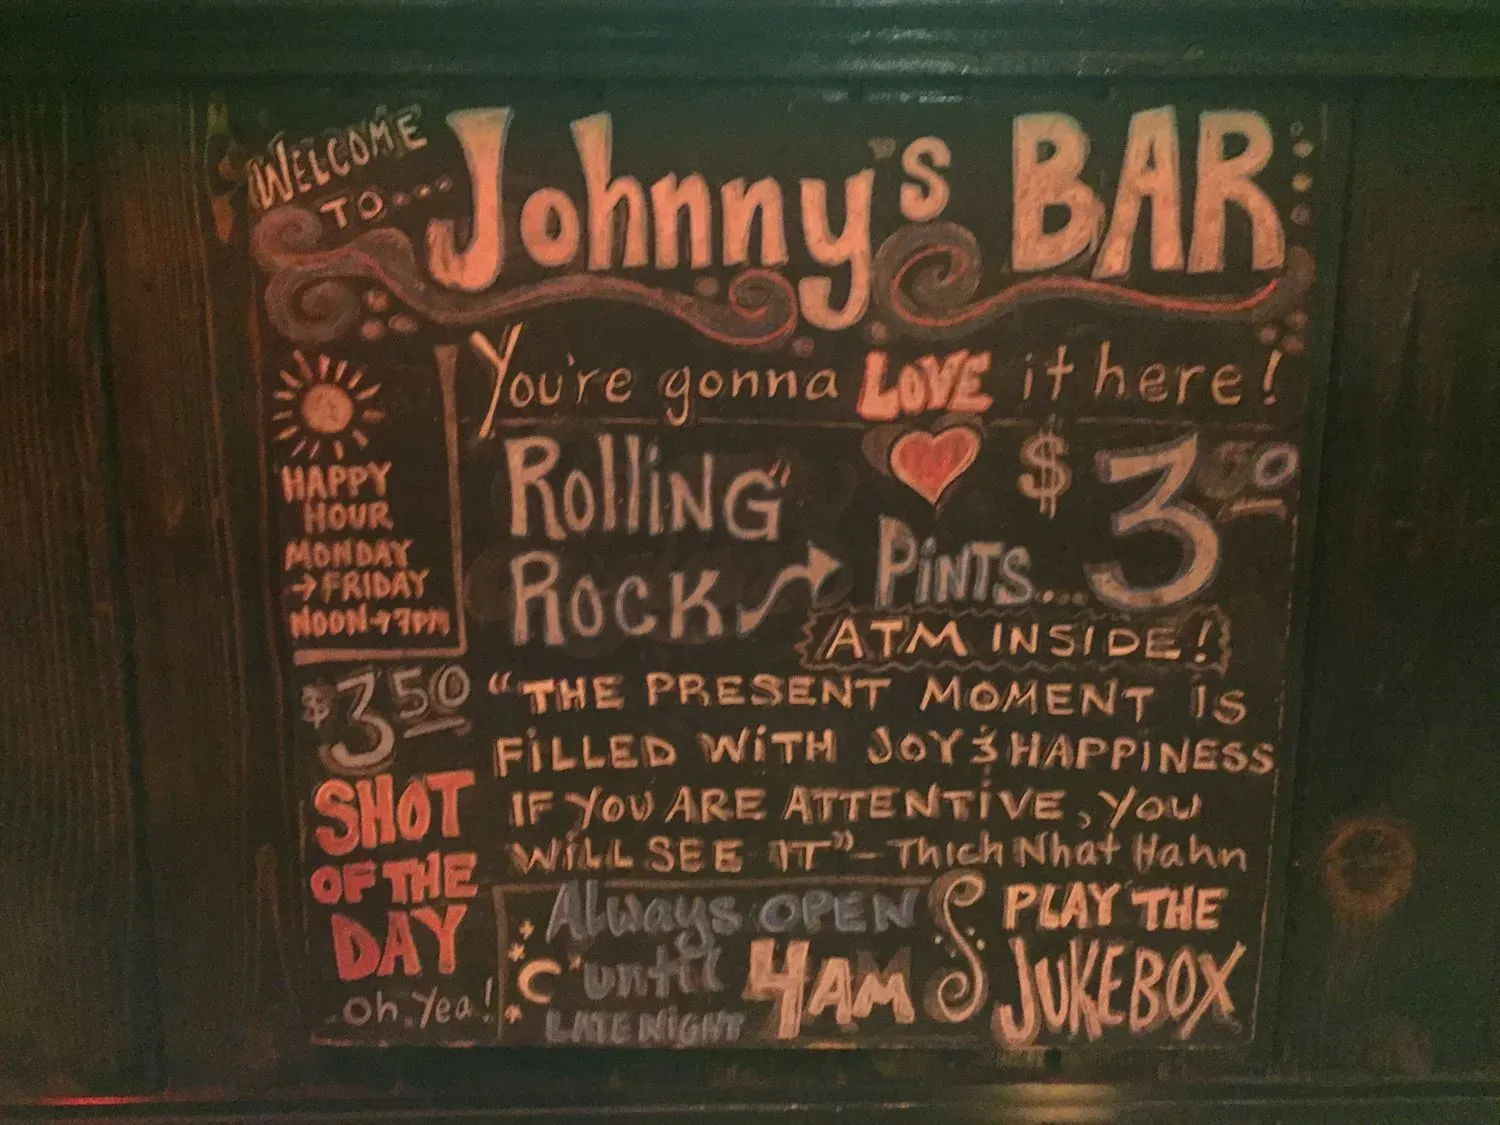 WELCOME
TO....
Johnny's BAR
You're gonna LOVE it here!
HAPPY
HOUR
MONDAY
→FRIDAY
NOON→7PM
Rolling
ROCK → PiNTS... $3.50
ATM INSIDE!
$3.50
SHOT
OF THE
DAY
oh, yea!
"THE PRESENT MOMENT IS
FiLLED WiTH JOY & HAPPiNESS
IF YOU ARE ATTENTiVE, YOU
WiLL SEE IT" - Thich Nhat Hahn
Always OPEN
until 4AM
LATE NIGHT
PLAY THE
JUKEBOX